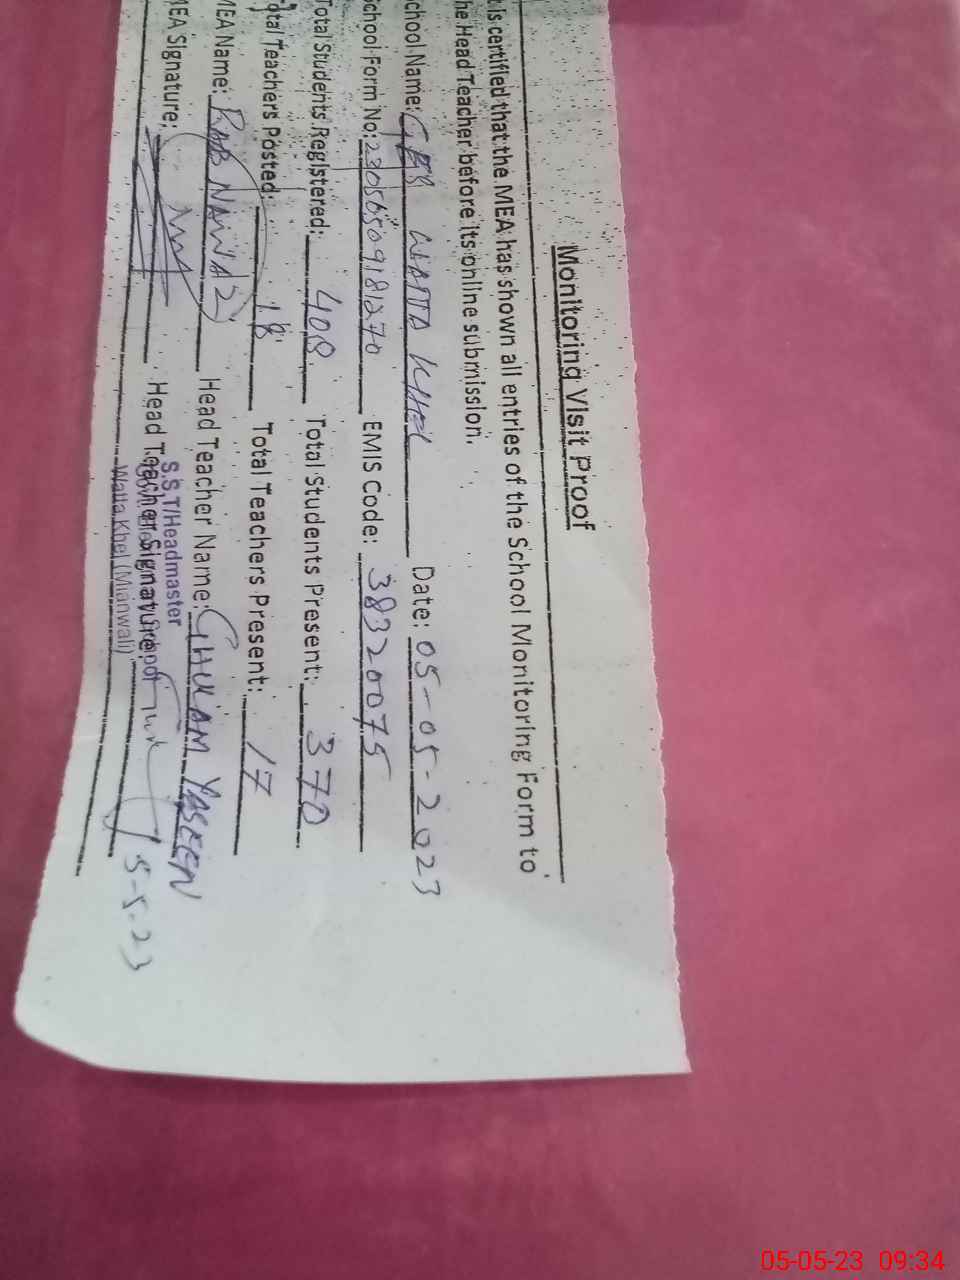 Monitoring Visit Proof
t is certified that the MEA has shown all entries of the School Monitoring Form to
he Head Teacher before its online submission.
chool Name: WATTA KHEL Date: 05-05-2023
School Form No: 23056509181270 EMIS Code: 38320075
Total Students Registered: 408 Total Students Present: 370
otal Teachers Posted: 18 Total Teachers Present: 17
MEA Name: RAB NAWAZ Head Teacher Name: GHULAM YASEEN
MEA Signature: Head Teacher Signature: 5-5-23
S.S.T/Headmaster
Watta Khel (Mianwali)
05-05-23 09:34